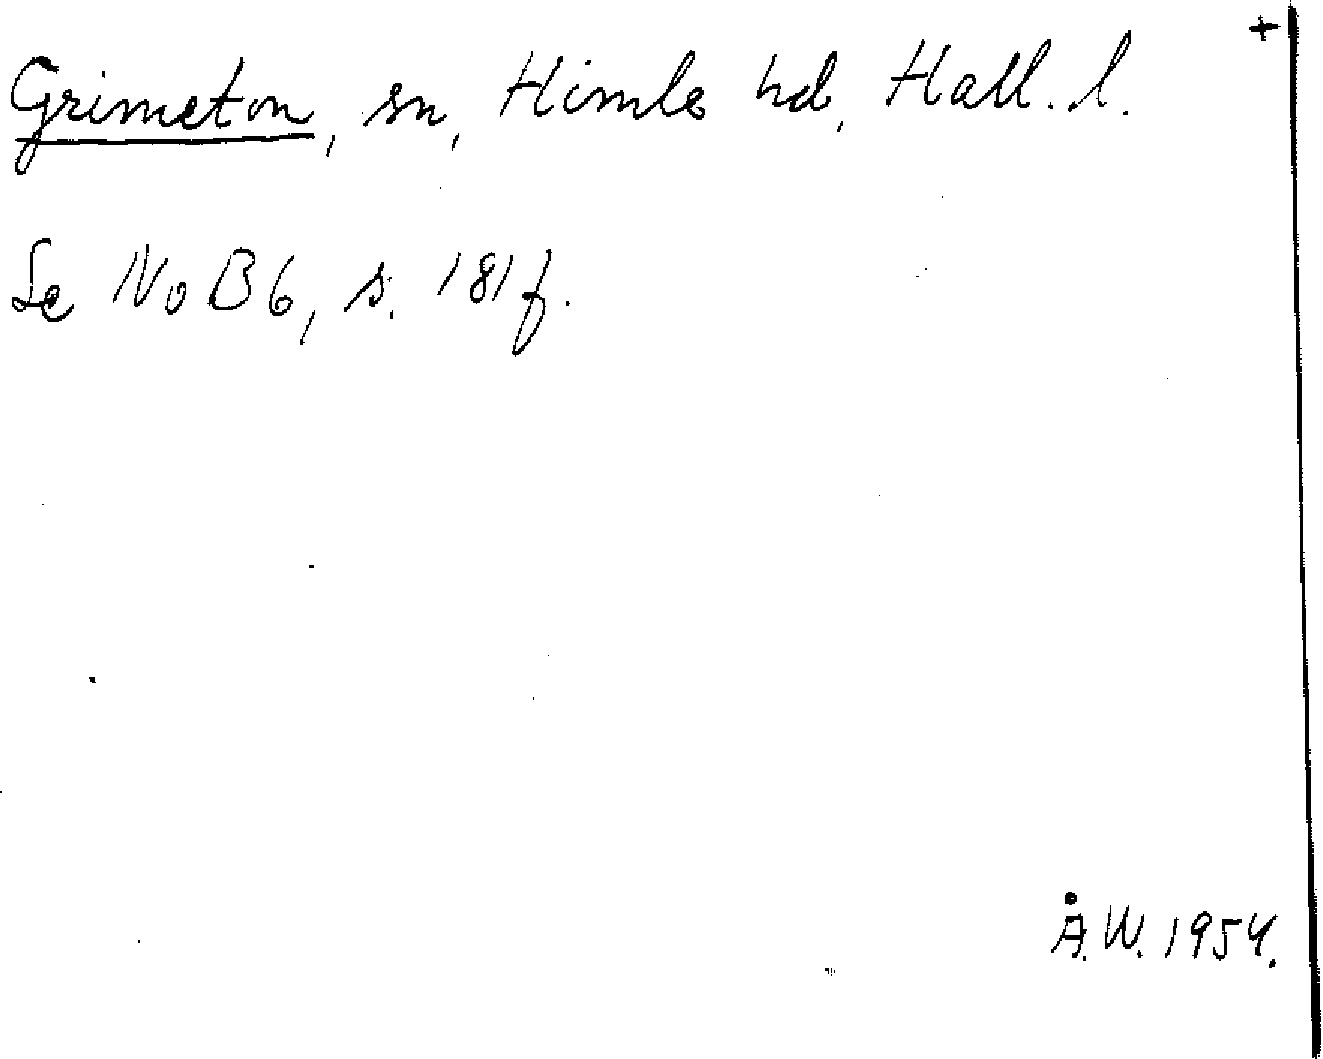 +
Grimeton, sn, Himle hd, Hall. l.
Se NoB 6, s. 181 f.
Å.W. 1954.